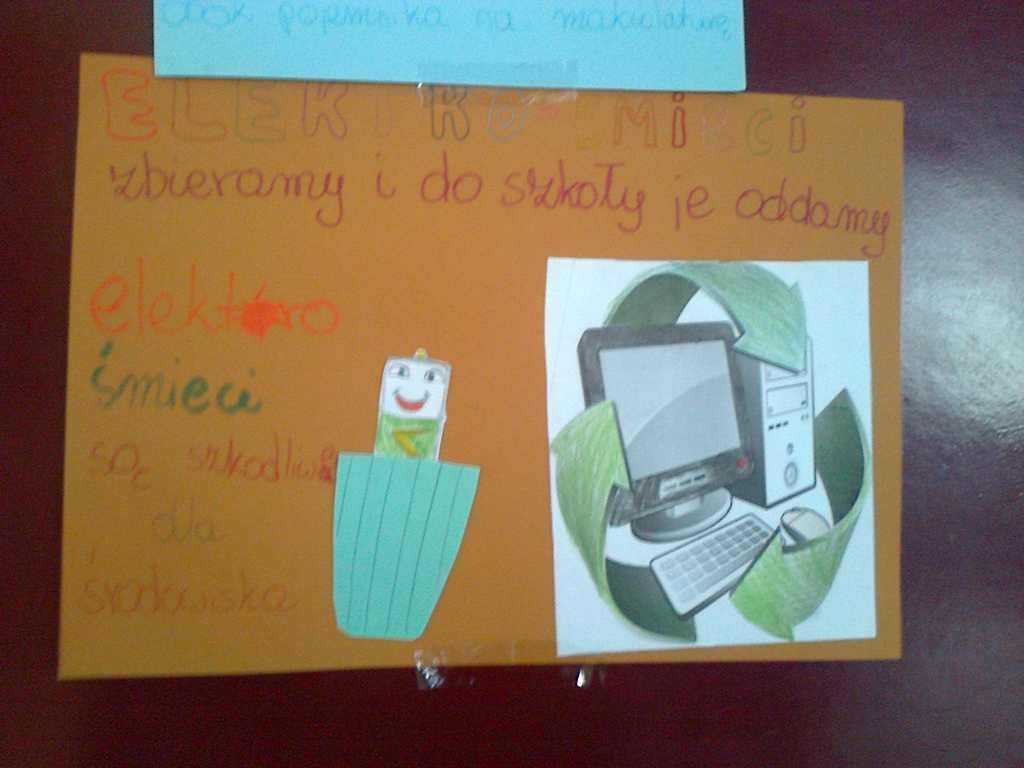 obok pojemnika na makulaturę
ELEKTRO ŚMiECi
zbieramy i do szkoły je oddamy
elektro
śmieci
są szkodliwe
dla
środowiska